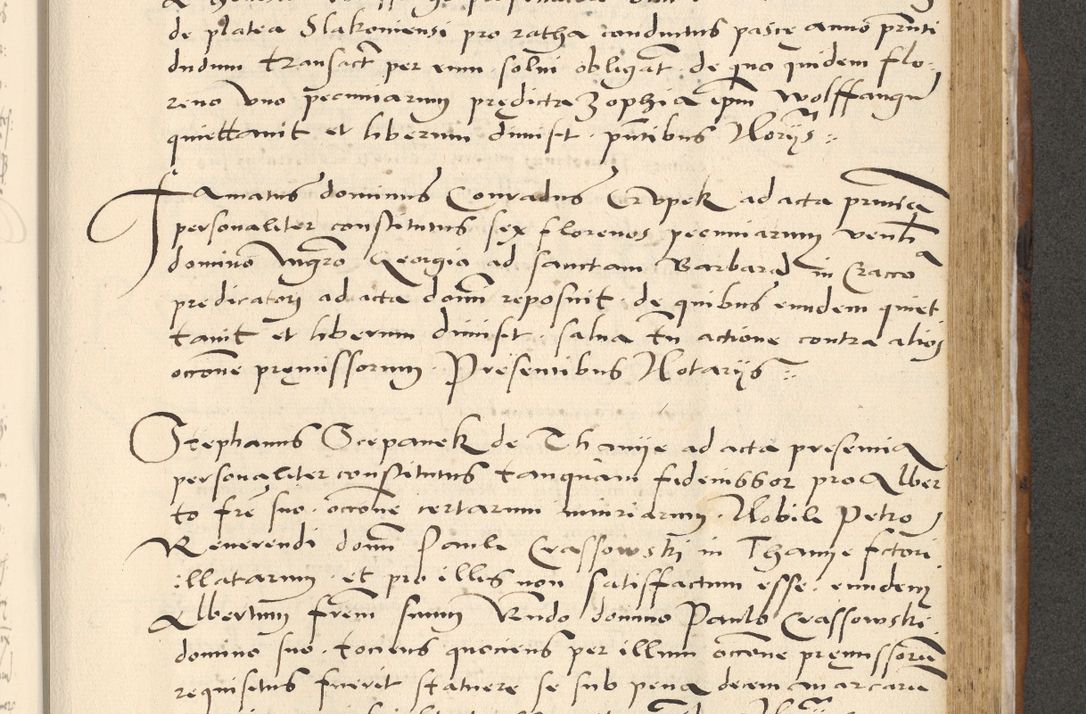 de platea Slakoviensi pro ratha conductus pasce anno prnti
dudum transact per eum solui obligat. de quo quidem flo-
reno vno pecuniarum prędicta Zophia ipm Wolffangu
quiettauit et liberum dimisit. pntibus Norijs
Famatus dominus Conradus Crupek ad acta prnicia
personaliter constitutus sex florenos pecuniarum
domino Georgio ad sanctam Barbara in Cracco
predicatori ad acta domi reposuit. de quibus eundem quiet
tauit et liberum dimisit. salua tn actione contra alios
occone pręmissorum. Presentibus Notarijs
Stephanus Scepanek de Thanije ad acta presencia
personaliter constitutus tanquam fideiussor pro Alber
to fre suo. occone certarum iniuriarum. Nobile Petro
Reuerendi domi Pauli Crassowski in Thanije fctori
illatarum. et pro illis non satisffactum esse. eundem
Albertum frem suum Rndo domino Paulo Crassowski.
domino suo. tociens quociens per illum occone pręmissoru
requisitus fuerit statuere se sub pena decem marcaru